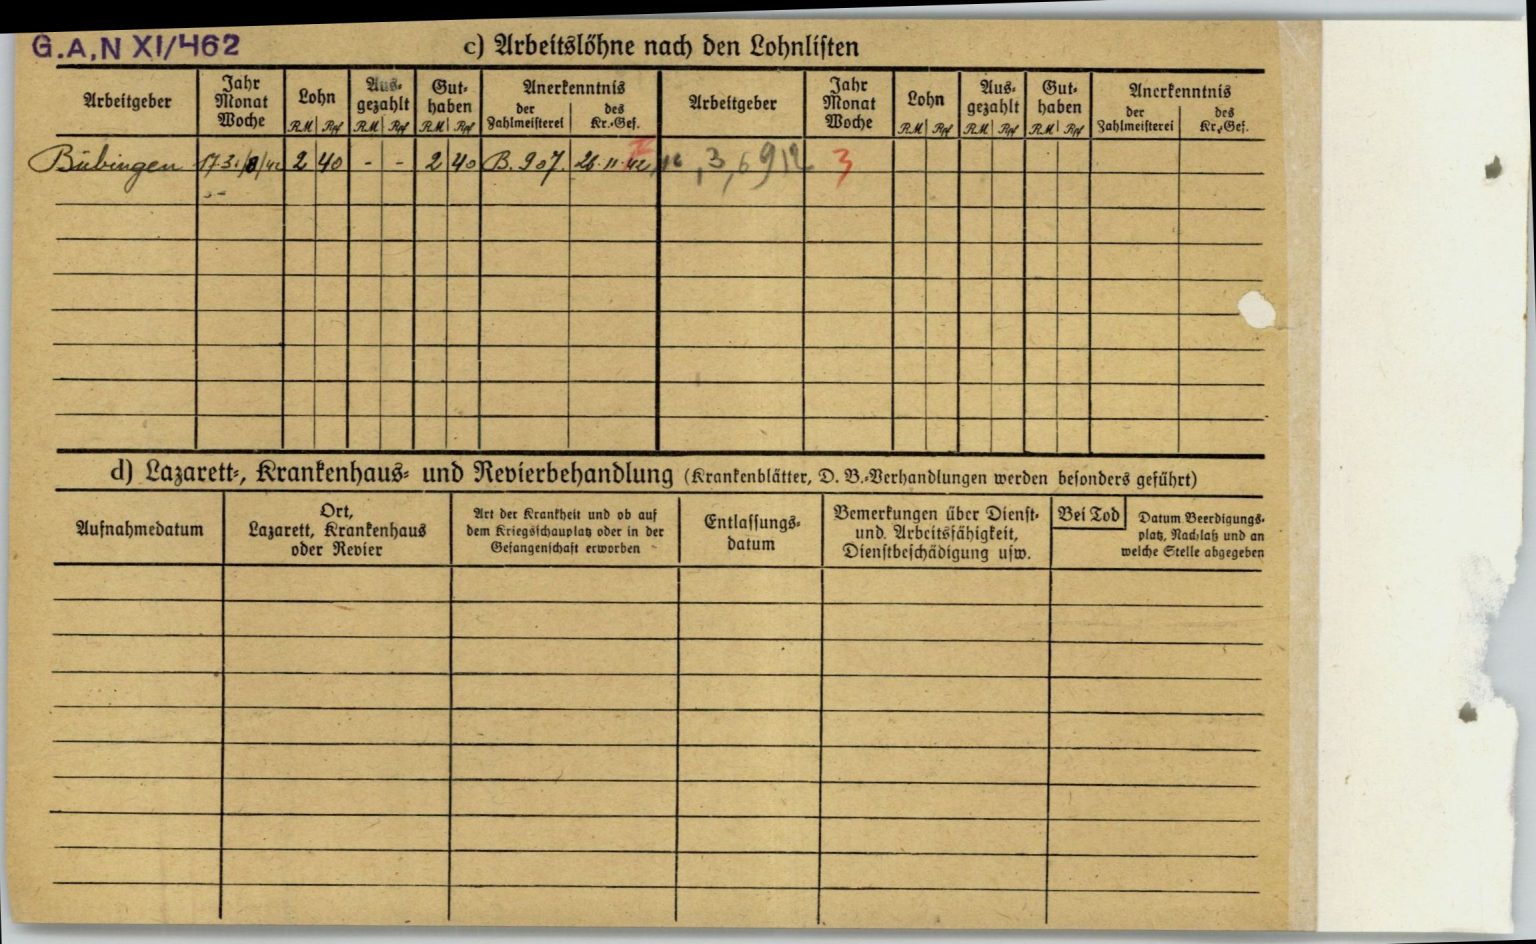 G.A,N XI/462
c) Arbeitslöhne nach den Lohnlisten
Arbeitgeber
Jahr
Monat
Woche
Lohn
RM Rpf
Aus-
gezahlt
RM Rpf
Gut-
haben
RM Rpf
Anerkenntnis
der
Zahlmeisterei
des
Kr.-Gef.
Arbeitgeber
Jahr
Monat
Woche
Lohn
RM Rpf
Aus-
gezahlt
RM Rpf
Gut-
haben
RM Rpf
Anerkenntnis
der
Zahlmeisterei
des
Kr.-Gef.
Bübingen 17 3./8/42 2 40 - - 2 40 B. 907. 26.11.42 3
d) Lazarett-, Krankenhaus- und Revierbehandlung (Krankenblätter, D. B.-Verhandlungen werden besonders geführt)
Aufnahmedatum
Ort,
Lazarett, Krankenhaus
oder Revier
Art der Krankheit und ob auf
dem Kriegsschauplatz oder in der
Gefangenschaft erworben
Entlassungs-
datum
Bemerkungen über Dienst-
und Arbeitsfähigkeit,
Dienstbeschädigung usw.
Bei Tod
Datum Beerdigungs-
platz, Nachlaß und an
welche Stelle abgegeben